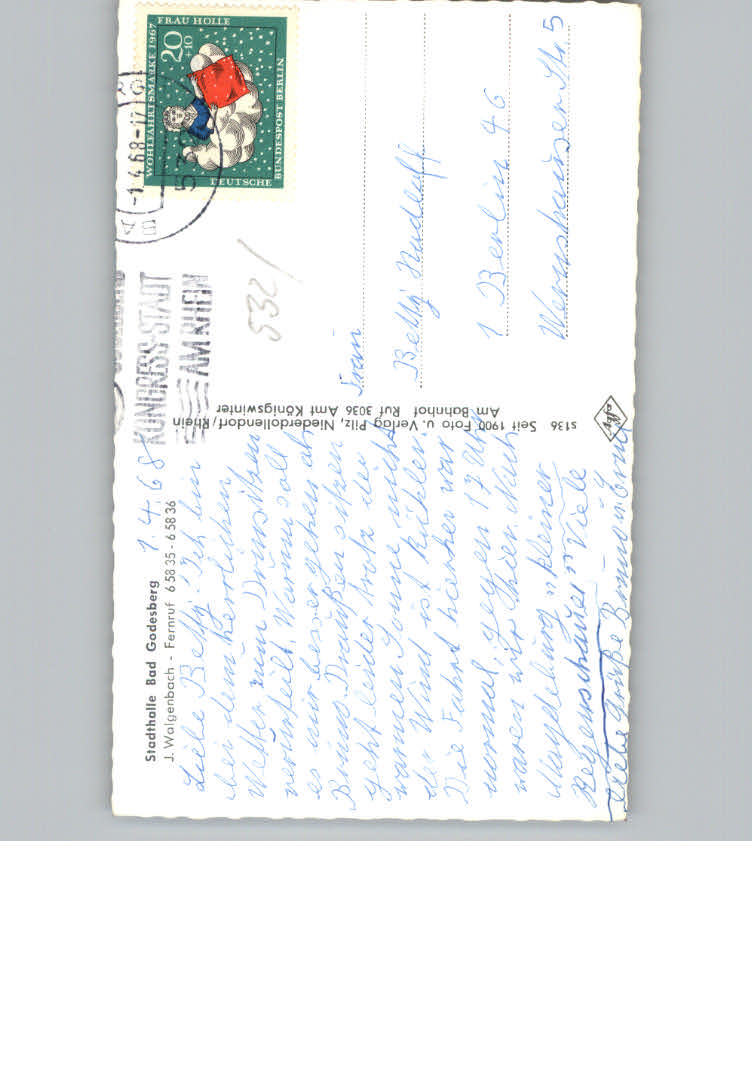 Stadthalle Bad Godesberg
J. Walgenbach - Fernruf 6 58 35 - 6 58 36
1.4.68
Liebe Betty! Ich bin
bei dem herrlichen
Wetter zum Drinsitzen
verurteilt. Warum soll
es mir besser gehen als
Bruno. Draußen sitzen
geht leider trotz der
warmen Sonne nicht
der Wind ist kühler.
Die Fahrt hierher war
normal, gegen 17 Uhr
waren wir hier. Nach
Magdeburg "kleiner
Regenschauer" Viele
liebe Grüße Bruno u.
s136 Seit 1900 Foto u. Verlag Pilz, Niederdollendorf/Rhein
Am Bahnhof Ruf 3036 Amt Königswinter
WOHLFAHRTSMARKE 1967
FRAU HOLLE
20+10
DEUTSCHE
BUNDESPOST BERLIN
-1.4.68-17
53
BA
KONGRESS-STADT
AM RHEIN
532/
Frau
Betty
1 Berlin 46
Str 5